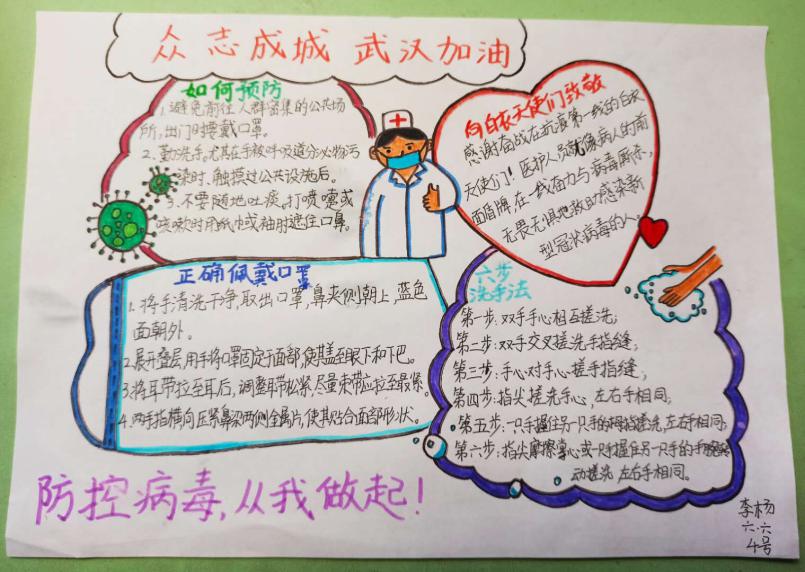 众志成城 武汉加油
如何预防
1.避免前往人群密集的公共场
所,出门时要戴口罩。
2.勤洗手。尤其在手被呼吸道分泌物污
染时、触摸过公共设施后。
3.不要随地吐痰,打喷嚏或
咳嗽时用纸巾或袖肘遮住口鼻。
向白衣天使们致敬
感谢奋战在抗疫第一线的白衣
天使们!医护人员就像病人的前
面盾牌,在一线奋力与病毒厮杀,
无畏无惧地救助感染新
型冠状病毒的人。
正确佩戴口罩
1.将手清洗干净,取出口罩,鼻夹侧朝上,蓝色
面朝外。
2.展开叠层,用手将口罩固定于面部,使其盖至眼下和下巴。
3.将耳带拉至耳后,调整耳带松紧,尽量束带应拉至最紧。
4.两手指横向压紧鼻梁两侧金属片,使其贴合面部形状。
六步
洗手法
第一步:双手手心相互搓洗;
第二步:双手交叉搓洗手指缝;
第三步:手心对手心搓手指缝;
第四步:指尖搓洗手心,左右手相同;
第五步:一只手握住另一只手的拇指搓洗,左右手相同;
第六步:指尖摩擦掌心或一只手握住另一只手的手腕转
动搓洗,左右手相同。
防控病毒,从我做起!
李杨
六.六
4号